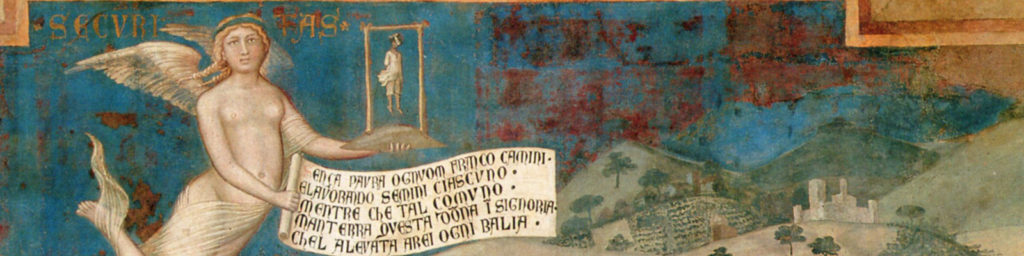 ·SECVRI TAS·
ENÇA PAVRA OGNVOM FRANCO CAMINI·
ELAVORANDO SEMINI CIASCVNO·
MENTRE CHE TAL COMVNO·
MANTERRA QVESTA DŌNA Ī SIGNORIA·
CHEL ALEVATA AREI OGNI BALIA·